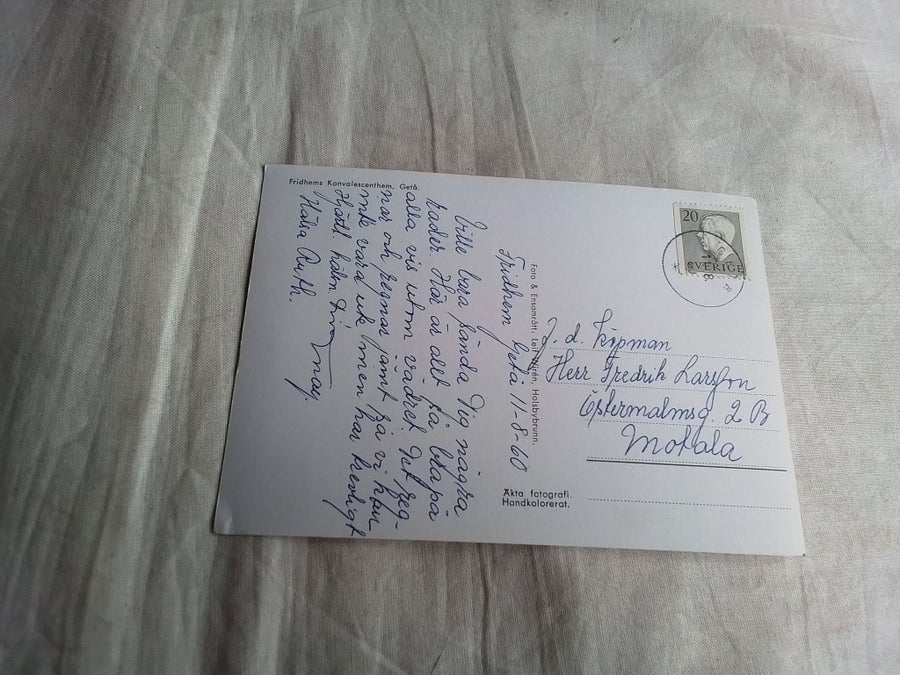 Fridhems Konvalescenthem, Getå.
Fridhem Getå 11-8-60
Ville bara sända Dig några
rader. Här är allt så bra på
alla vis utom vädret. Det reg-
nar och regnar jämt så vi kan
inte vara ute men har trevligt
Hjärtl. hälsn
Hälsa Ruth.
Foto & Ensamrätt: Holsbybrunn.
20
SVERIGE
F. d. Köpman
Herr Fredrik Larsson
Östermalmsg 2 B
Motala
Äkta fotografi.
Handkolorerat.